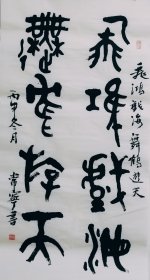 飛鴻戲海舞鶴遊天
飛鴻戲海
舞鶴游天
丙申冬月